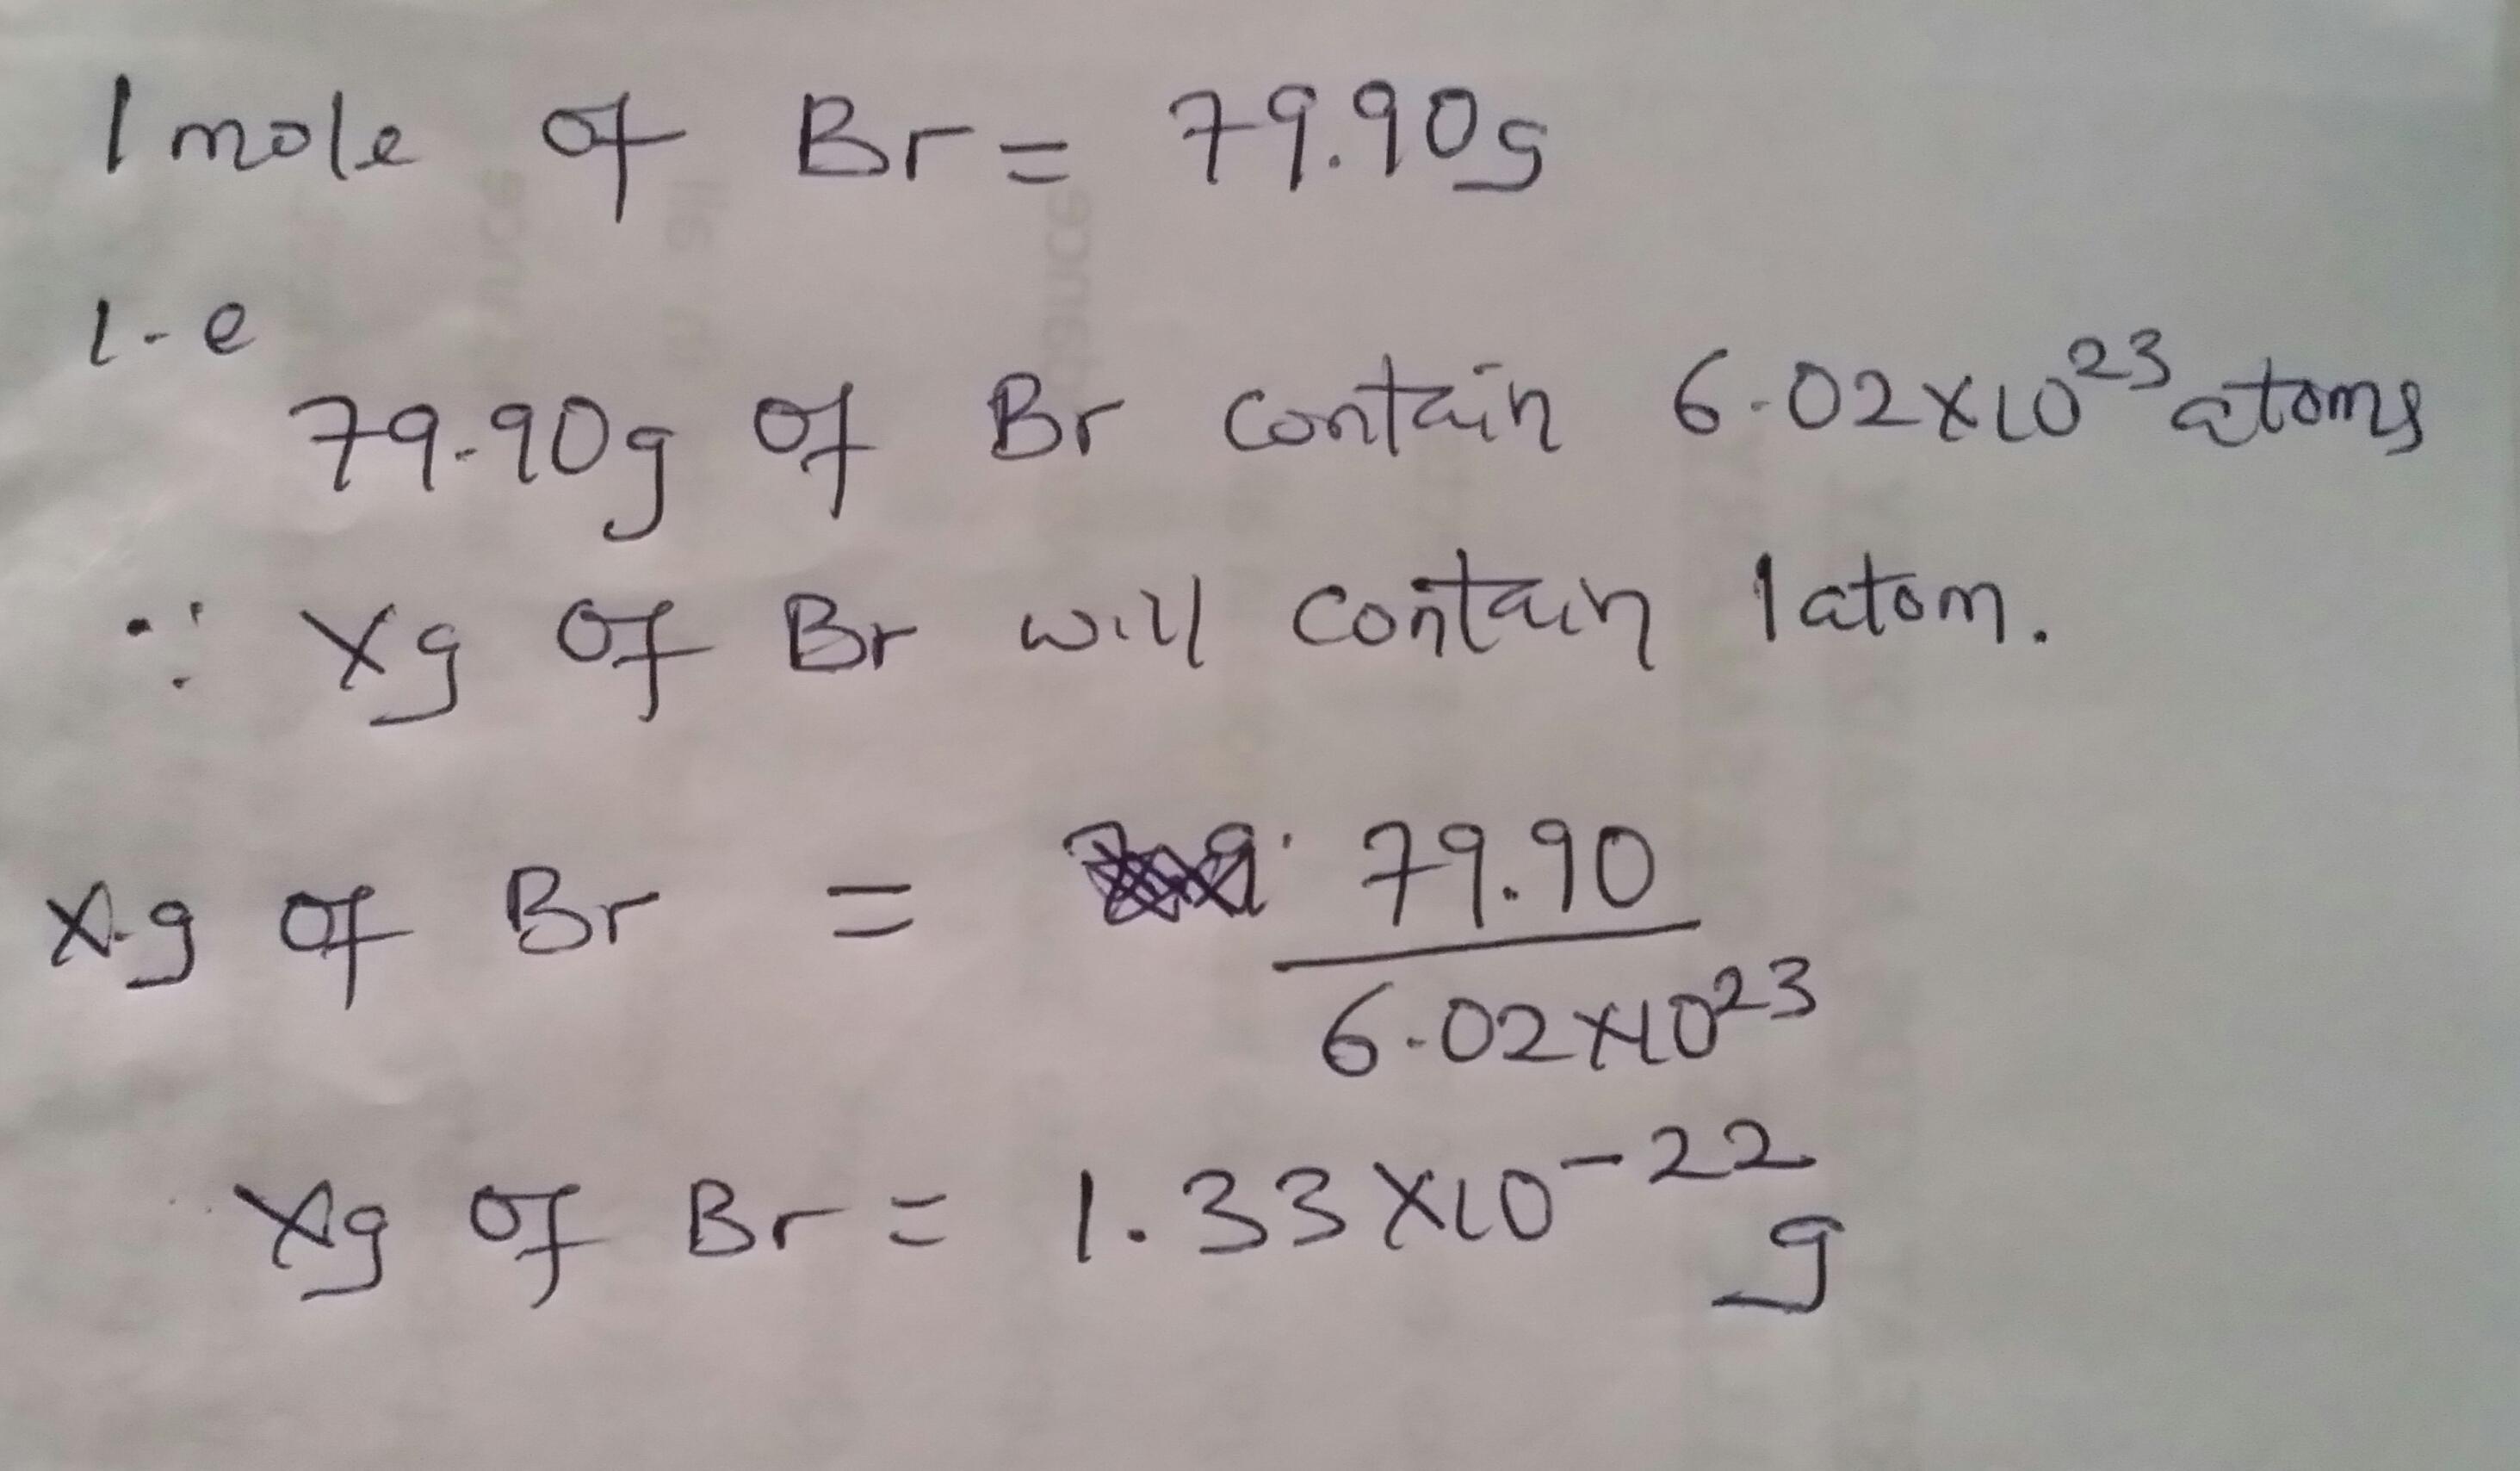 1 mole of Br = 79.90g
i.e
79.90g of Br contain 6.02×10²³ atoms
∴ Xg of Br will contain 1 atom.
X.g of Br = 79.90
6.02×10²³
Xg of Br = 1.33×10⁻²² g